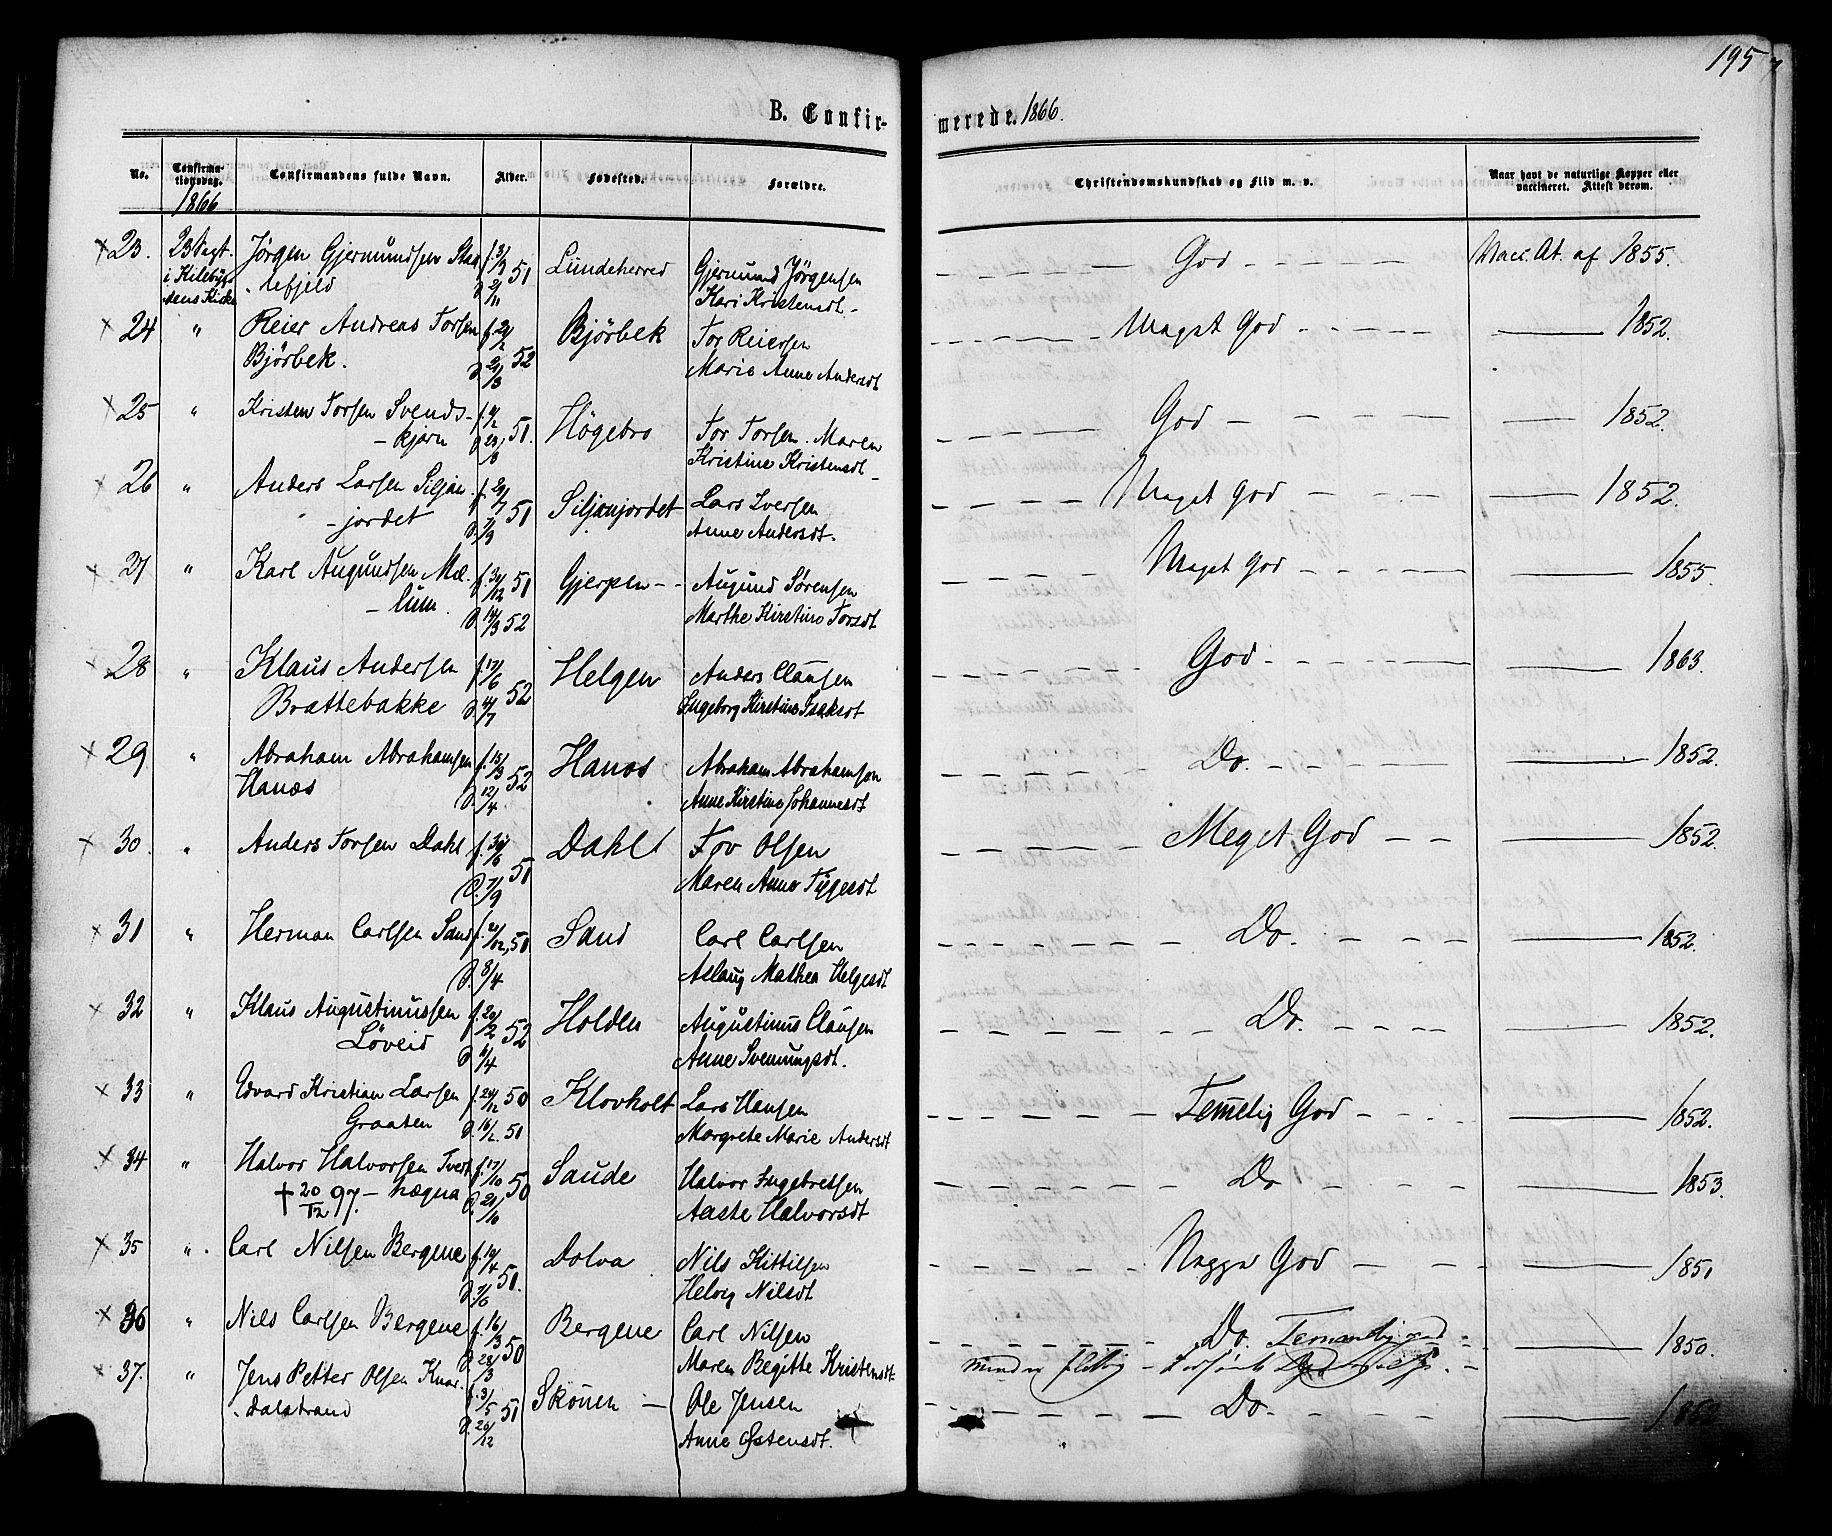 195
B. Confirmerede. 1866.
No. Confirmationsdag. Confirmandens fulde Navn. Alder. Fødested. Forældre. Christendomskundskab og Flid m. v. Naar havt de naturlige Kopper eller vaccineret. Attest derom.
1866
23. 23 Sept. Jørgen Gjermundsen f. 3/3 51 Lundeherred Gjermund Jørgensen God Vacc. At. af 1855.
i Kilebygdens Kirke lefjeld d. 2/11 Kari Kristensdt
24 " Reier Andreas Torsen f. 2/2 52 Bjørbek Tor Reiersen Meget God 1852.
Bjørbek. d. 21/3 Marie Anne Andersdt
25 " Kristen Torsen Svends- 51. Høgebro Tor Torsen. Maren God 1852.
kjærn d. 23/8 Kristine Kristensdt
26 " Anders Larsen Siljan f. 29/7 51 Siljanjordet Lars Iversen Meget God 1852.
-jordet d. 7/9 Anne Andersdt.
27 " Karl Augundsen Mæ- f. 30/12 51 Gjerpen Augund Sørensen Meget God 1855.
-lum. d. 14/3 52 Marthe Kirstine Torsdt
28 " Klaus Andersen f. 17/6 52 Helgen Anders Clausen God 1863.
Brattebakke d. 11/7 Ingeborg Kirstine Isaksdt
29 " Abraham Abrahamsen f. 15/3 52 Hanæs Abraham Abrahamsen Do. 1852.
Hanæs d. 12/4 Anne Kirstine Johannesdt
30. " Anders Torsen Dahl f. 30/6 51 Dahl Tov Olsen Meget God 1852.
d. 7/9 Maren Anne Tygesdt
31 " Herman Carlsen Sand f. 21/12 50 Sand Carl Carlsen Do. 1852.
d. 8/4 Aslaug Mathea Helgesdt
32 " Klaus Augustinussen f. 20/2 52 Holden Augustinus Clausen Do. 1852.
Løveid d. 6/4 Anne Svenungsdt.
33 " Edvard Kristian Larsen f. 20/12 50 Klovholt Lars Hansen Temelig God 1852.
Graaten d. 16/2. 51 Margrete Marie Andersdt
34 " Halvor Halvorsen Tvet f. 17/10 50 Saude Halvor Ingebretsen Do 1853.
† 20/12 97. - hægna d. 21/10 Aaste Halvorsdt
35 " Carl Nilsen Bergene f. 10/4 51. Dolva Nils Kittilsen Neppe God 1851
d. 7/6 Helvig Nilsdt
36 " Nils Carlsen Bergene f. 16/3 50 Bergene Carl Nilsen Do. 1850.
d. 28/3 Maren Begitte Kristensdt mindre flittig
37. " Jens Petter Olsen Knar- f. 3/5 51 Skouen Ole Jensen Do. 1852
dalstrand d. 20/12 Anne Østensdt.